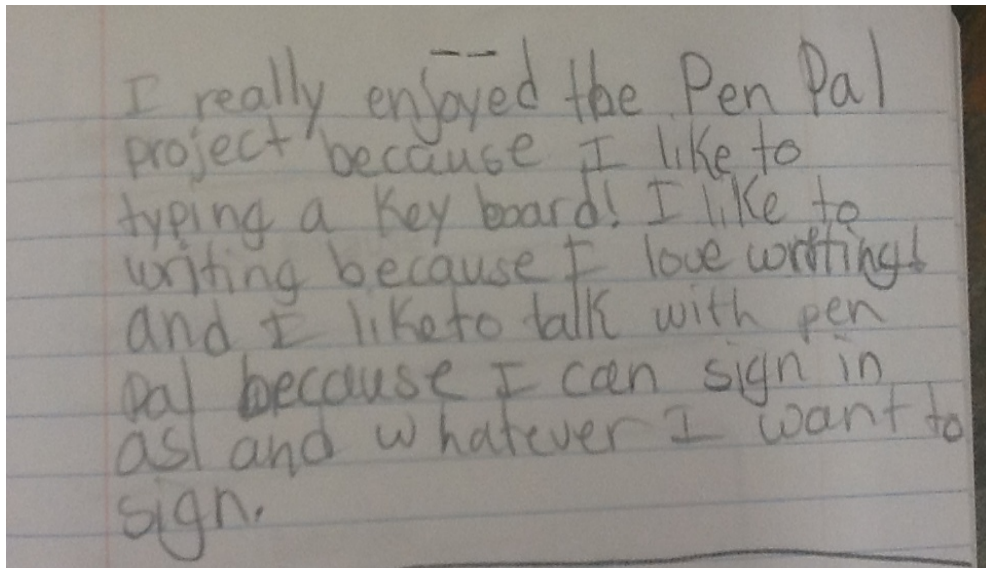 I really enjoyed the Pen Pal
project because I like to
typing a Key board! I like to
writing because I love writting!
and I like to talk with pen
pal because I can sign in
asl and whatever I want to
sign.